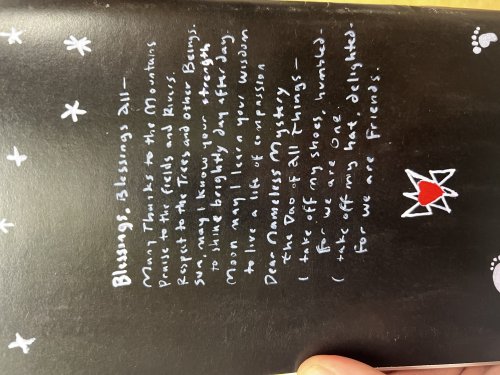 Blessings, Blessings all—
Many Thanks to the Mountains
Praise to the fields and Rivers.
Respect to the Trees and other Beings.
Sun, may I know your strength
to shine brightly day after day.
Moon may I learn your wisdom
to live a life of compassion
Dear Nameless Mystery
the Dao of all Things—
I take off my shoes, humbled—
for we are one.
I take off my hat, delighted—
for we are friends.